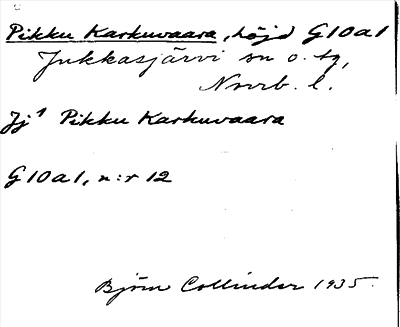 Pikku Karkuvaara, höjd G10a1
Jukkasjärvi sn o. tg,
Norrb. l.
Jj¹ Pikku Karkuvaara
G10a1, n:r 12
Björn Collinder 1935.